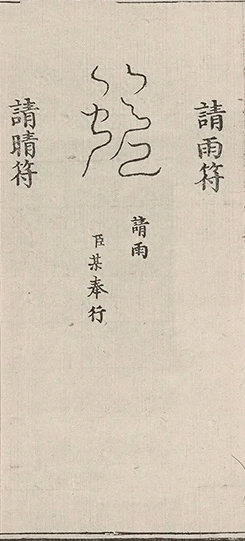 請雨符
請雨
臣某奉行
請晴符